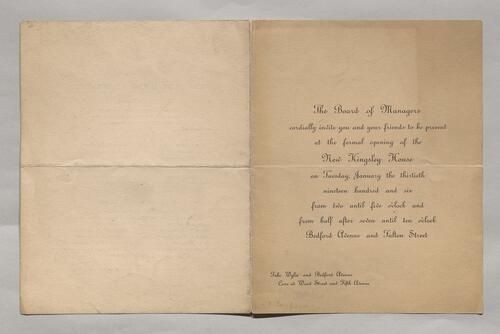 The Board of Managers
cordially invite you and your friends to be present
at the formal opening of the
New Kingsley House
on Tuesday, January the thirtieth
nineteen hundred and six
from two until five o'clock and
from half after seven until ten o'clock
Bedford Avenue and Fulton Street
Take Wylie and Bedford Avenue
Cars at Wood Street and Fifth Avenue